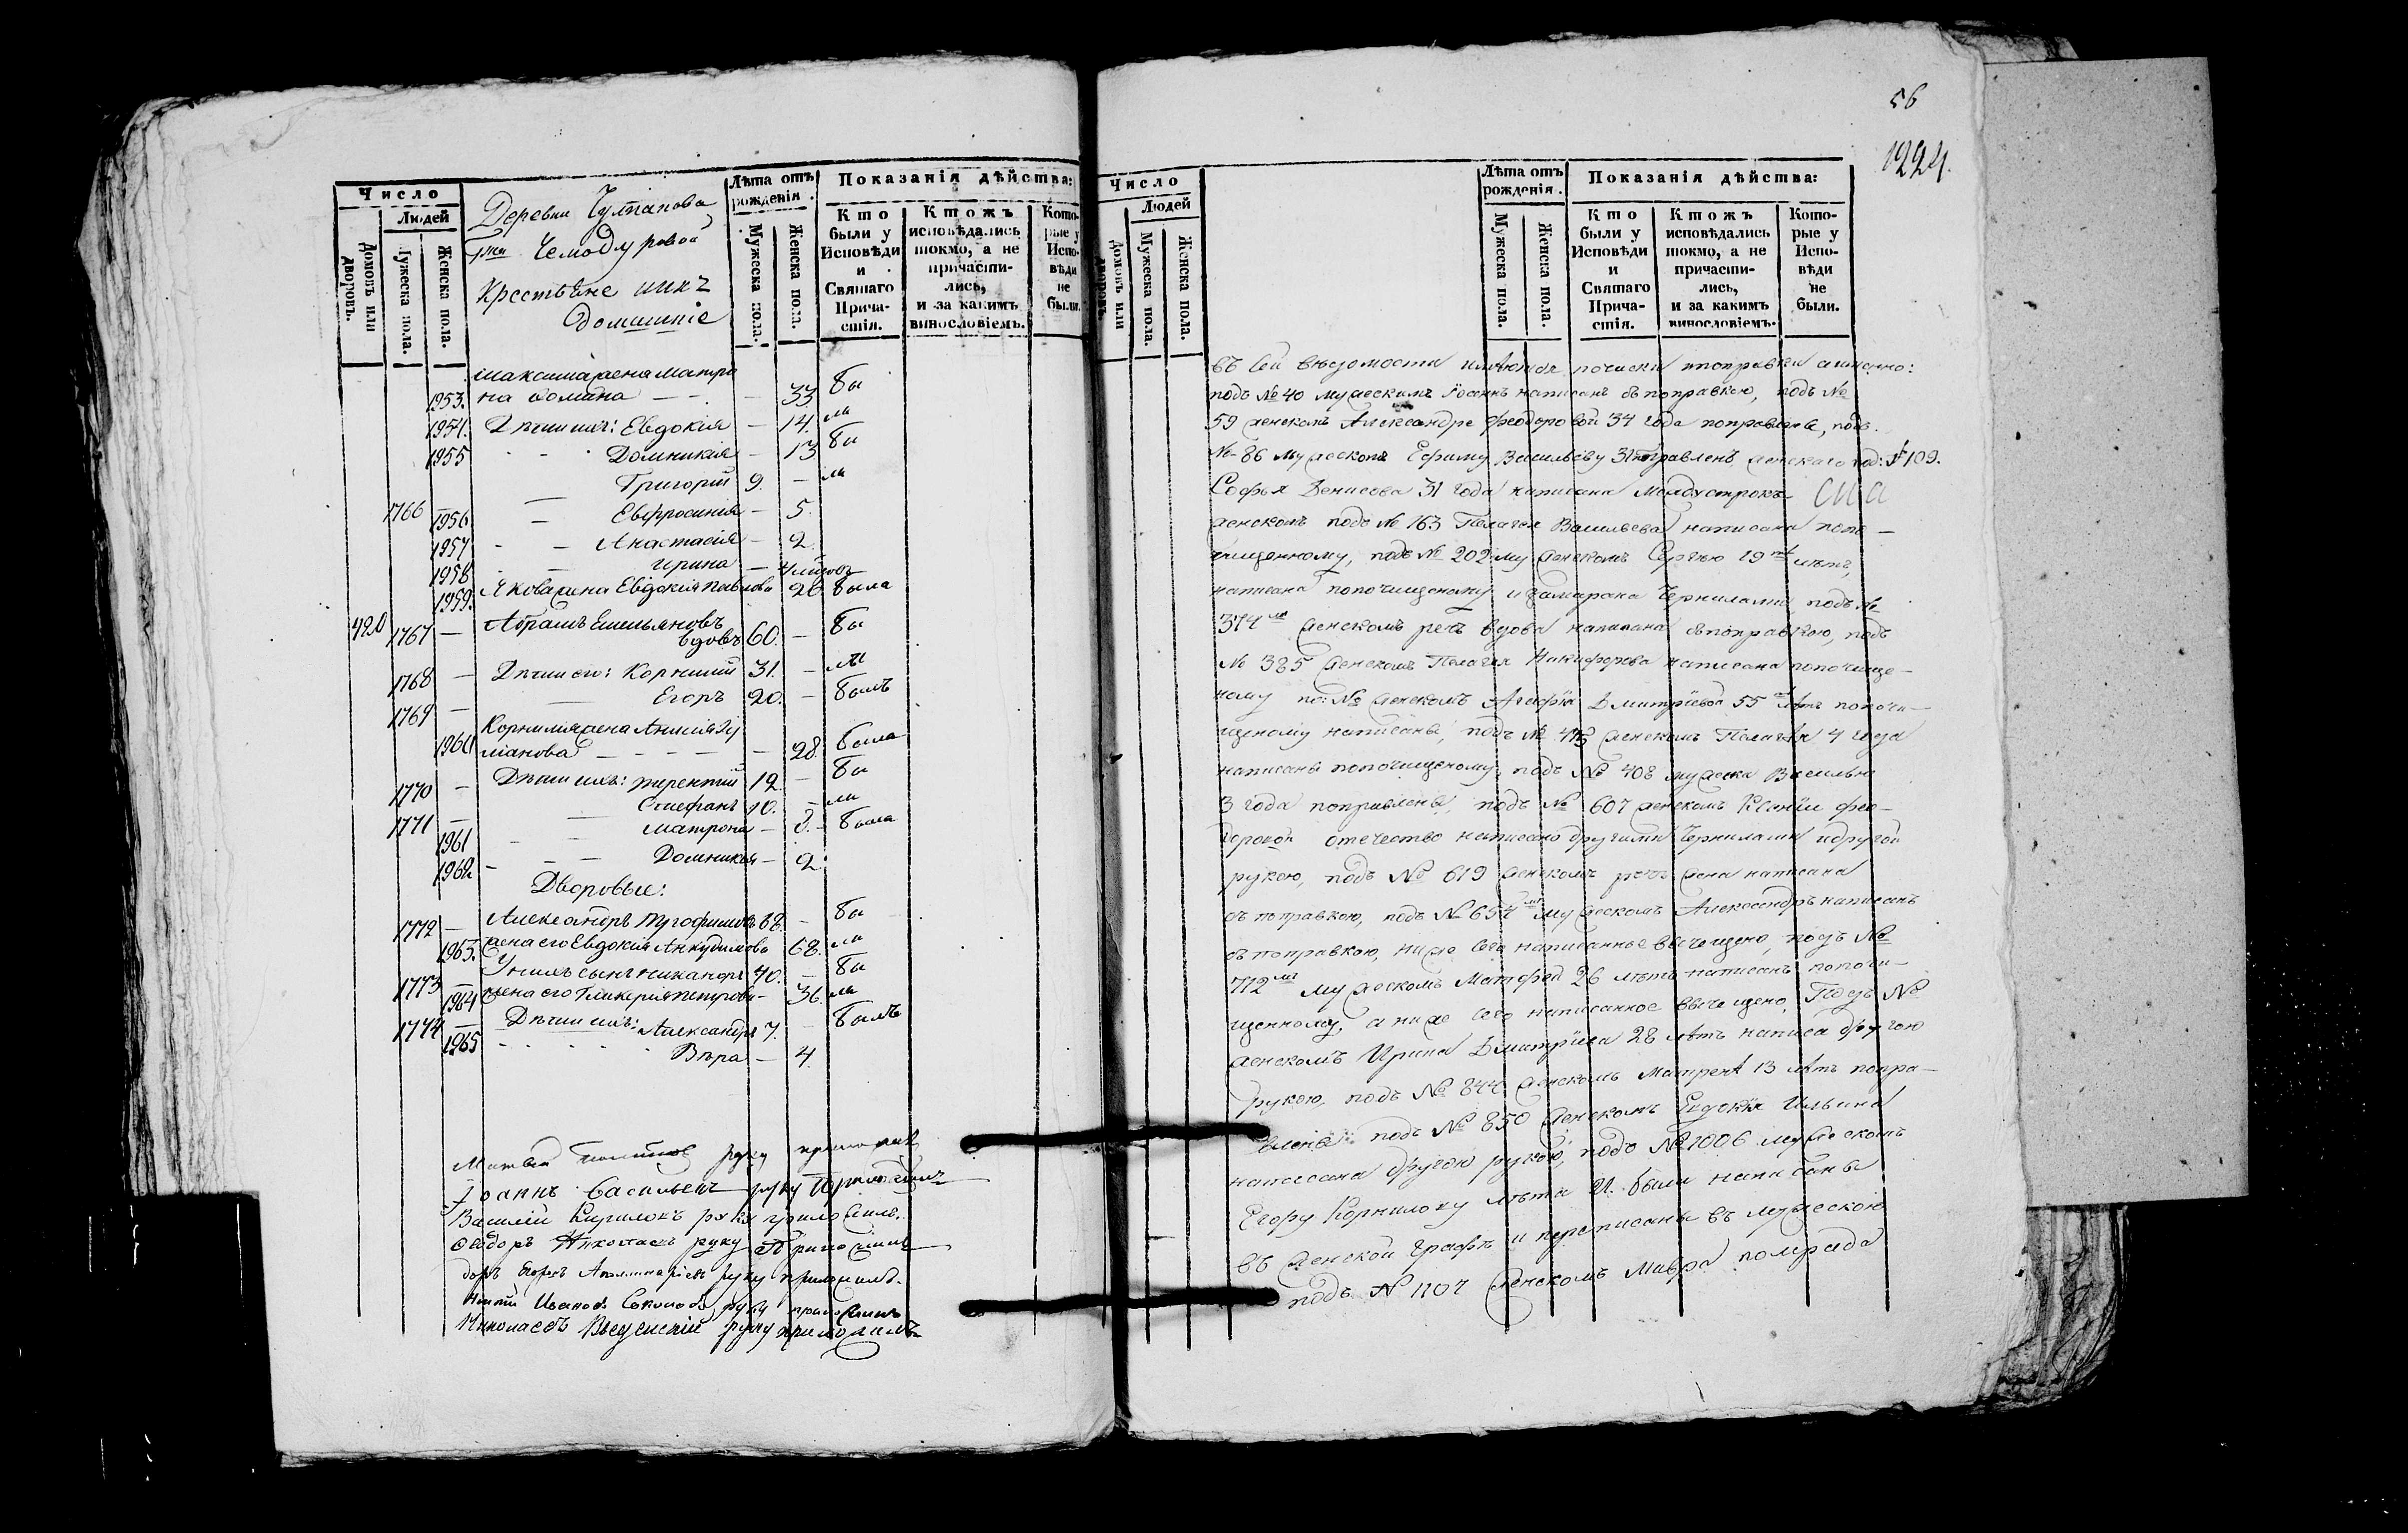 Число
Людей
Домовъ или дворовъ.
Мужеска пола.
Женска пола.
Деревни Чулпанова
Гжи Чемодуровой
Крестьяне ихъ
домашніе
Лѣта отъ рожденія.
Мужеска пола.
Женска пола.
Показанія дѣйства:
Кто были у Исповѣди и Святаго Причастія.
Ктожъ исповѣдались токмо, а не причастились, и за какимъ винословіемъ.
Которые у Исповѣди не были.
Максима жена Матро
1953. на Фомина — 33 бы
1954. Дѣти ихъ: Евдокия — 14. ли
1955 Домникия — 13 бы
1766 Григорий 9. — ли
1956 Евфросиния — 5.
1957 Анастасия — 2
1958 Ирина —
1959. Якова жена Евдокия Павлова 26 была
420 1767 — Абрамъ Емельяновъ
вдовъ 60. — бы
1768 — Дѣти его: Корнилий 31. — ли
1769 — Егоръ 20. — былъ
Корнилия жена Анисия
1960 — 28. была
1770 — Дѣти ихъ: Терентий 12 — бы
1771 — Стефанъ 10. — ли
1961 Матрона — 8. — была
1962 Домникия — 2.
Дворовые:
1772 — Александръ Трофимовъ 68. — бы
1963. жена его Евдокия Анкудинова 68. ли
1773 У нихъ сынъ Никаноръ 40. — бы
1964 жена его Гликерия Петрова — 36. ли
1774 — Дѣти ихъ: Александръ 7. — былъ
1965 Вѣра — 4.
Матвей руку приложилъ
Iоаннъ Васильевъ руку приложилъ
Василий Кириловъ руку приложилъ.
Ѳеодоръ Николаевъ руку приложилъ
руку приложилъ.
Ивановъ Соколовъ руку приложилъ
Введенский руку приложилъ
56
1224.
Число
Людей
Домовъ или дворовъ.
Мужеска пола.
Женска пола.
Лѣта отъ рожденія.
Мужеска пола.
Женска пола.
Показанія дѣйства:
Кто были у Исповѣди и Святаго Причастія.
Ктожъ исповѣдались токмо, а не причастились, и за какимъ винословіемъ.
Которые у Исповѣди не были.
въ сей вѣдомости имѣются почиски и поправки а именно:
подъ № 40 мужескимъ Iоаннъ написанъ съ поправкою, подъ №
59 женскомъ Александре Феодоровой 34 года поправлены, подъ
№ 86 мужескомъ Ефиму Васильеву 31 поправленъ, женскаго под: № 109.
Софья Денисова 31 года написана между строкъ
женскомъ подъ № 163 Пелагея Васильева написана попо-
чищенному, подъ № 202 мужескомъ Сергѣю 19 лѣтъ,
написана попочищеному и замарана чернилами, подъ №
374 женскомъ речь вдова написана съ поправкою, подъ
№ 385 женскомъ Пелагея Никифорова написана попочище-
ному по: № женскомъ Агафiя Дмитрiева 55 лѣтъ попочи-
щеному написаны, подъ № женскомъ Пелагея 4 года
написаны попочищеному, подъ № 408 мужеска
3 года поправлены, подъ № 607 женскомъ Ксенiи Фео-
доровой отечество написано другими чернилами и другой
рукою, подъ № 619 женскомъ речь жена написана
съ поправкою, подъ № 654 мужескомъ Александръ написанъ
съ поправкою, ниже сего написанные вычищено, подъ №
712 мужескомъ Матфей 26 лѣтъ написанъ попочи-
щенному, а ниже сего написанное вычищено, Подъ №
женскомъ Ирина Дмитрiева 28 лѣтъ написа другою
рукою, подъ № 844 женскомъ Матрена 13 лѣтъ попра-
влены подъ № 850 женскомъ Евдокiя Ильина
написана другою рукою, подъ № 1006 мужескомъ
Егору Корнилову лѣта 21. были написаны
въ женской графѣ и прописаны въ мужескою
подъ № 1107 женскомъ Мавра